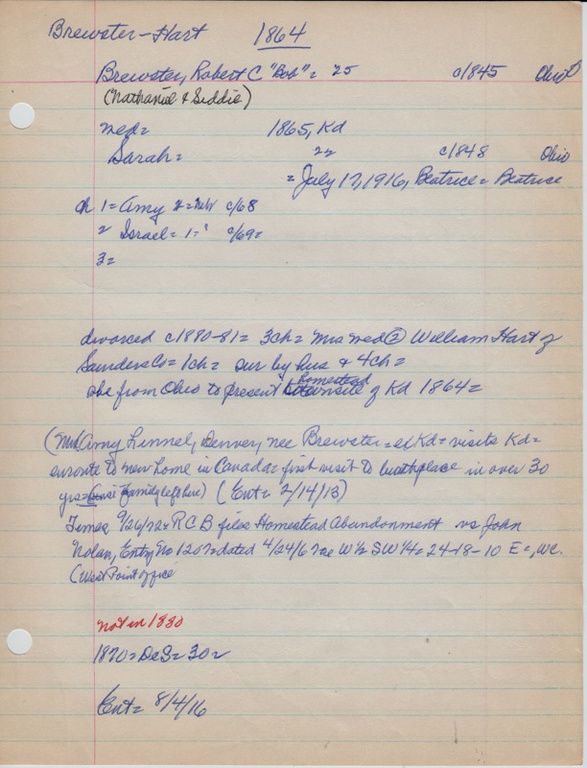 Brewster-Hart 1864
Brewster, Robert C "Bob" = 25 c1845 Ohio
(Nathaniel & Siddie)
med= 1865, Kd
Sarah= 22 c1848 Ohio
= July 17, 1916, Beatrice = Beatrice
ch 1= Amy 2= Nebr c/68
2 Israel= 1= " c/69=
3=
divorced c1880-81= 3ch= Mrs med ② William Hart of
Saunders Co= 1ch= sur by hus & 4ch=
she from Ohio to present homestead of Kd 1864=
(Mrs Amy Linnel, Denver, nee Brewster= Kd= visits Kd=
enroute to new home in Canada= first visit to birthplace in over 30
yrs= since family left here) (Ent= 2/14/13)
Times 9/26/72= RCB files Homestead Abandonment vs John
Nolan, Entry No 1207= dated 4/24/6 W½ SW¼= 24-18-10 E=, WC.
(West Point office
not in 1880
1870= DeS= 30=
Ent= 8/4/16